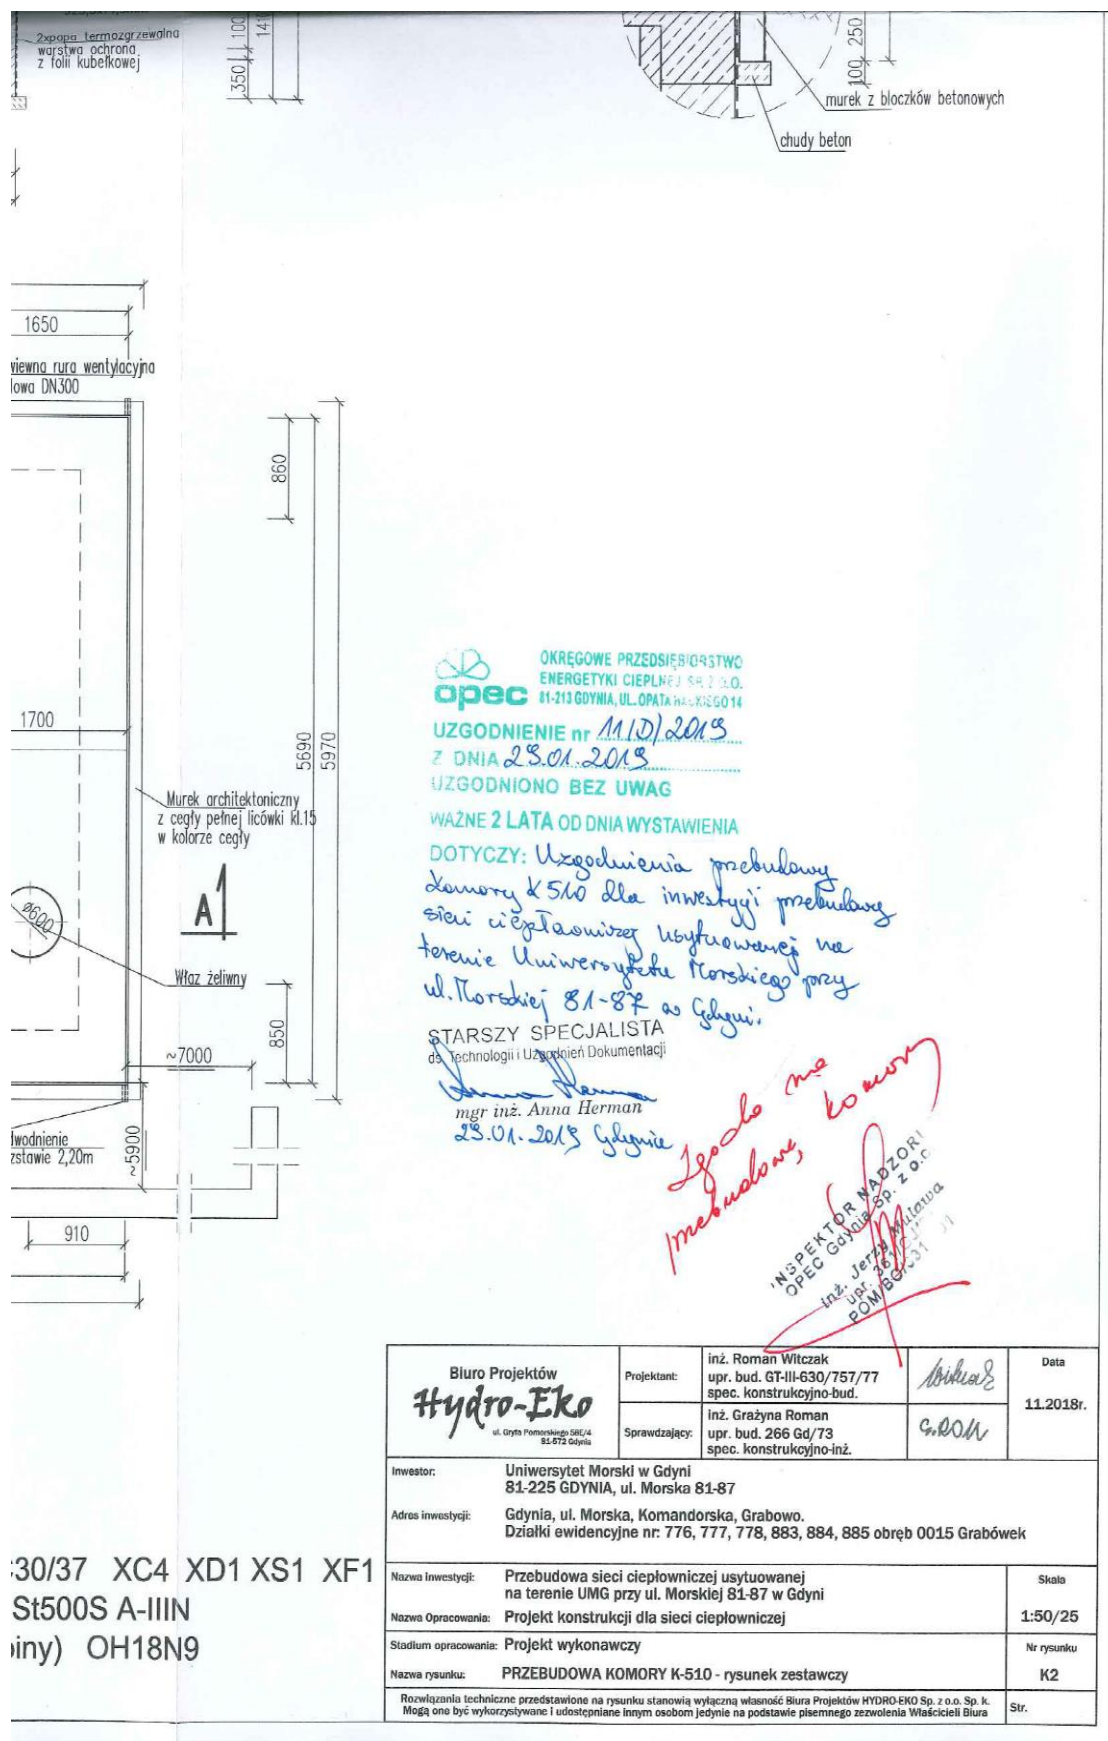 2xpapa termozgrzewalna
warstwa ochrona
z folii kubełkowej
350
100
141
100
250
murek z bloczków betonowych
chudy beton
1650
wiewna rura wentylacyjna
lowa DN300
860
1700
5690
5970
Murek architektoniczny
z cegły pełnej licówki kl.15
w kolorze cegły
A
1
ø600
Właz żeliwny
850
~7000
wodnienie
zstawie 2,20m
~5900
910
opec
OKRĘGOWE PRZEDSIĘBIORSTWO
ENERGETYKI CIEPLNEJ SP. Z O.O.
81-213 GDYNIA, UL. OPATA HACKIEGO 14
UZGODNIENIE nr 11/D/2019
Z DNIA 29.01.2019
UZGODNIONO BEZ UWAG
WAŻNE 2 LATA OD DNIA WYSTAWIENIA
DOTYCZY: Uzgodnienia przebudowy
komory K510 dla inwestycji przebudowy
sieci ciepłowniczej usytuowanej na
terenie Uniwersytetu Morskiego przy
ul. Morskiej 81-87 w Gdyni.
STARSZY SPECJALISTA
ds. Technologii i Uzgodnień Dokumentacji
mgr inż. Anna Herman
29.01.2019 Gdynia
Zgoda na
przebudowę komory
INSPEKTOR NADZORU
OPEC Gdynia Sp. z o.o.
inż. Jerzy Mulawa
Biuro Projektów
Hydro-Eko
ul. Gryfa Pomorskiego 58E/4
81-572 Gdynia
Projektant:
inż. Roman Witczak
upr. bud. GT-III-630/757/77
spec. konstrukcyjno-bud.
Data
11.2018r.
Sprawdzający:
inż. Grażyna Roman
upr. bud. 266 Gd/73
spec. konstrukcyjno-inż.
G.ROM
Inwestor: Uniwersytet Morski w Gdyni
81-225 GDYNIA, ul. Morska 81-87
Adres inwestycji: Gdynia, ul. Morska, Komandorska, Grabowo.
Działki ewidencyjne nr: 776, 777, 778, 883, 884, 885 obręb 0015 Grabówek
:30/37 XC4 XD1 XS1 XF1
St500S A-IIIN
iny) OH18N9
Nazwa inwestycji: Przebudowa sieci ciepłowniczej usytuowanej
na terenie UMG przy ul. Morskiej 81-87 w Gdyni
Skala
Nazwa Opracowania: Projekt konstrukcji dla sieci ciepłowniczej
1:50/25
Stadium opracowania: Projekt wykonawczy
Nr rysunku
Nazwa rysunku: PRZEBUDOWA KOMORY K-510 - rysunek zestawczy
K2
Rozwiązania techniczne przedstawione na rysunku stanowią wyłączną własność Biura Projektów HYDRO-EKO Sp. z o.o. Sp. k.
Mogą one być wykorzystywane i udostępniane innym osobom jedynie na podstawie pisemnego zezwolenia Właścicieli Biura
Str.